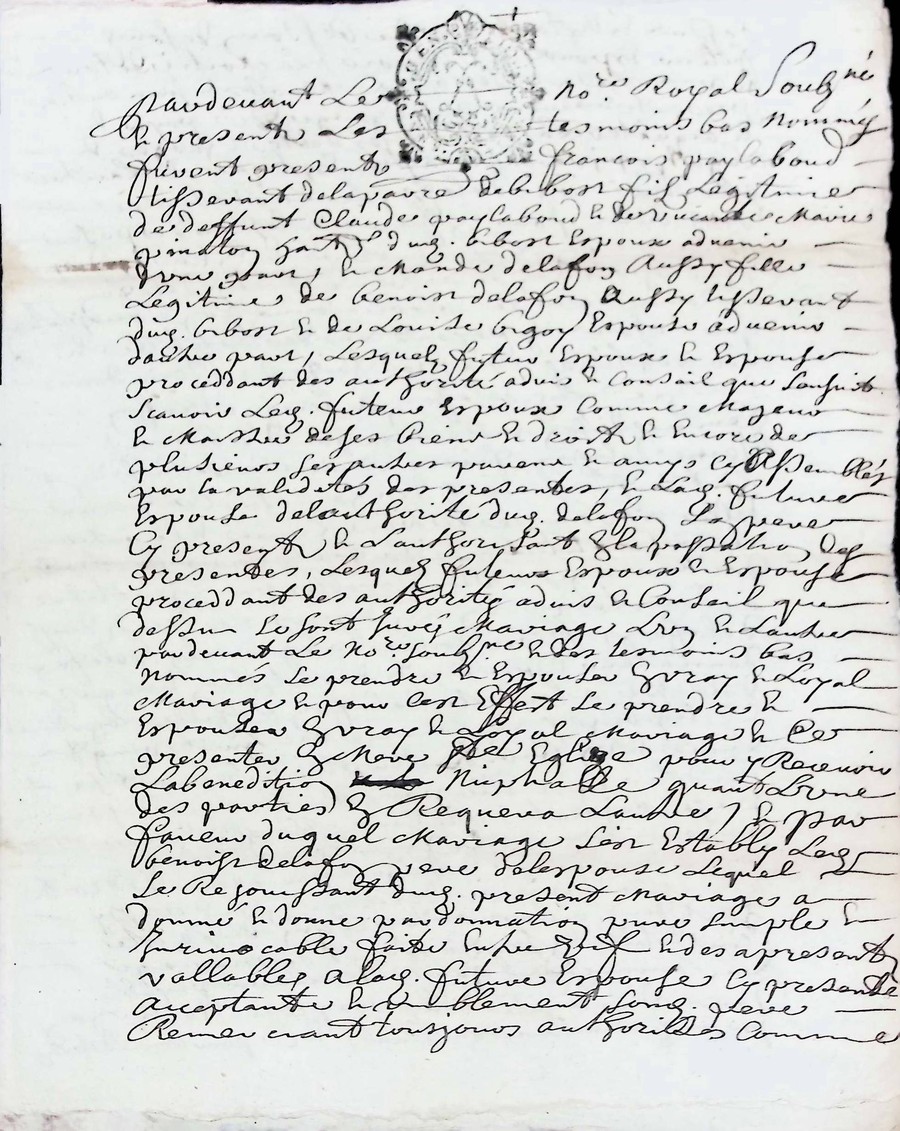 Pardevant Le no.re Royal Soubz.né
Et presents Les tesmoins bas Nommés
furent presents françois paylaboud
tissevant de la pavre de bibost fils Legitime
de deffunt Claude paylaboud Et de vivante Marie
pinaton habt.s dud. bibost Espoux advenir
d'une part, Et Claude delafon Aussy fille
Legitime de benoist delafon Aussy tissevant
dud. bibost Et de Louise bigoy Espouse advenir
dautre part, Lesquelz futur Espoux Et Espouse
proceddant des authorité advis Et Conseil que sensuit
Scavoir Led. futeur Espoux Comme Mageur
Et Maistre de ses biens Et droits Et Encore de
plusieurs ses autres parens Et amys Cy Assemblés
par la validetés des presentes, Et Lad. future
Espouse de lauthorité dud. delafon Son pere
Cy present Et Lauthorisant En la passation des
presentes, Lesquelz futeurs Espoux Et Espouse
proceddant des authorités advis Et Conseil que
dessus Se sont Jurés Mariage Lun Et Lautre
pardevant Le No.re Soubz.né Et des tesmoins bas
Nommés Se prendre Et Espouser En vray Et Loyal
Mariage Et pour Cest Effest Se prendre Et
Espouser En vray Et Loyal Mariage Et Ce
presenter En Mere Ste Eglize pour y Recevoir
La benedition Nuphalle quant Lune
des parties En Requera Lautre, Et par
faveur duquel Mariage Sest Estably Led.
benoist delafon pere de lespouse Lequel
Se Rejouissant dud. present Mariage a
donné Et donne par donnation pure Simple Et
Inrinocable faite Entre vifs Et des apresent
vallables a lad. future Espouse Cy presente
acceptante Et humblement Sond. pere
Remerciant tousjours authorisés Comme